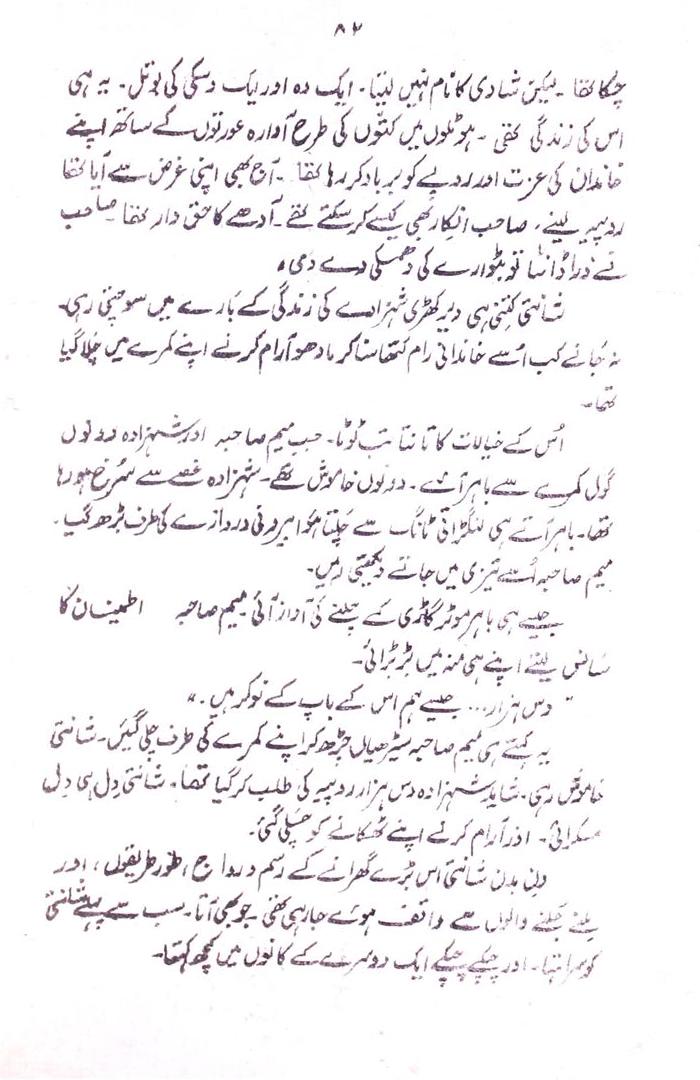 ۸۲
چُکا تھا۔ لیکن شادی کا نام نہیں لیتا۔ ایک وہ اور ایک وسکی کی بوتل۔ یہ ہی
اس کی زندگی تھی۔ ہوٹلوں میں کتّوں کی طرح آوارہ عورتوں کے ساتھ اپنے
خاندان کی عزت اور روپے کو برباد کر رہا تھا۔ آج بھی اپنی غرض سے آیا تھا
روپیہ لینے، صاحب انکار بھی کیسے کر سکتے تھے۔ آدھے کا حق دار تھا۔ صاحب
نے ذرا ڈانٹا تو بٹوارے کی دھمکی دے دی۔
شانتی کتنی ہی دیر کھڑی شہزادے کی زندگی کے بارے میں سوچتی رہی۔
نہ جانے کب اُسے خاندانی رام کتھا سنا کر مادھو آرام کرنے اپنے کمرے میں چلا گیا
تھا۔
اُس کے خیالات کا تانتا تب ٹوٹا۔ جب میم صاحبہ اور شہزادہ دونوں
گول کمرے سے باہر آئے۔ دونوں خاموش تھے۔ شہزادہ غصے سے سُرخ ہو رہا
تھا۔ باہر آتے ہی لنگڑاتی ٹانگ سے چلتا ہوا بیرونی دروازے کی طرف بڑھ گیا۔
میم صاحبہ اُسے تیزی میں جاتے دیکھتی رہیں۔
جیسے ہی باہر موٹر گاڑی کے چلنے کی آواز آئی میم صاحبہ اطمینان کا
سانس لیتے اپنے ہی منہ میں بڑبڑائی۔
"دس ہزار... جیسے ہم اس کے باپ کے نوکر ہیں۔"
یہ کہتے ہی میم صاحبہ سیڑھیاں چڑھ کر اپنے کمرے کی طرف چلی گئیں۔ شانتی
خاموش رہی۔ شاید شہزادہ دس ہزار روپیہ کی طلب کر گیا تھا۔ شانتی دل ہی دل
مسکرائی۔ اور آرام کرنے اپنے ٹھکانے کو چلی گئی۔
دن بدن شانتی اس بڑے گھرانے کے رسم و رواج، طور طریقوں، اور
ملنے جلنے والوں سے واقف ہوئے جا رہی تھی۔ جو بھی آتا۔ سب سے پہلے شانتی
کو سراہتا۔ اور چپکے چپکے ایک دوسرے کے کانوں میں کچھ کہتا۔